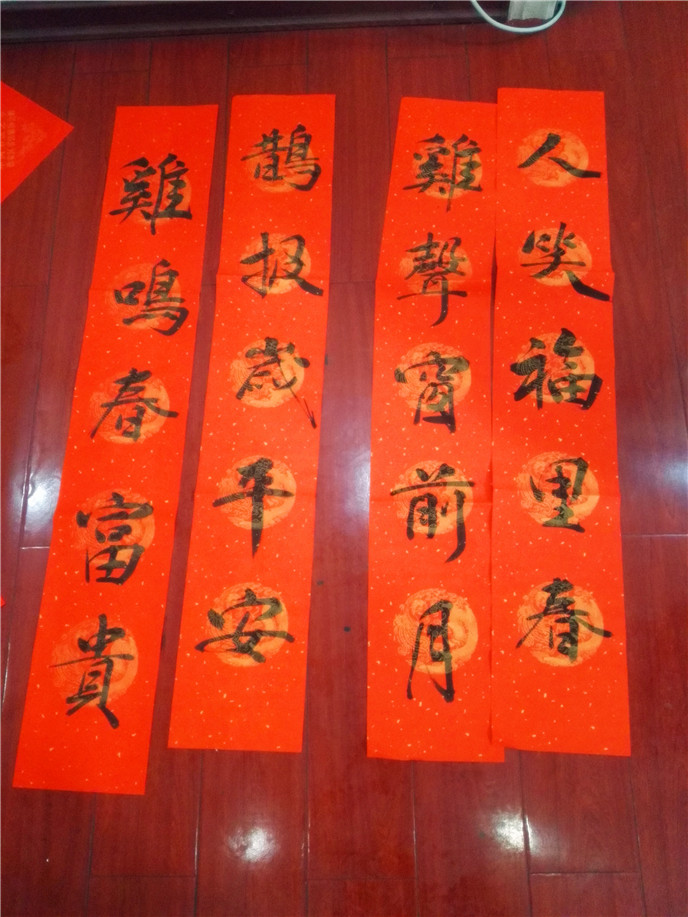 雞鳴春富貴
鵲报歲平安
雞聲窗前月
人笑福里春